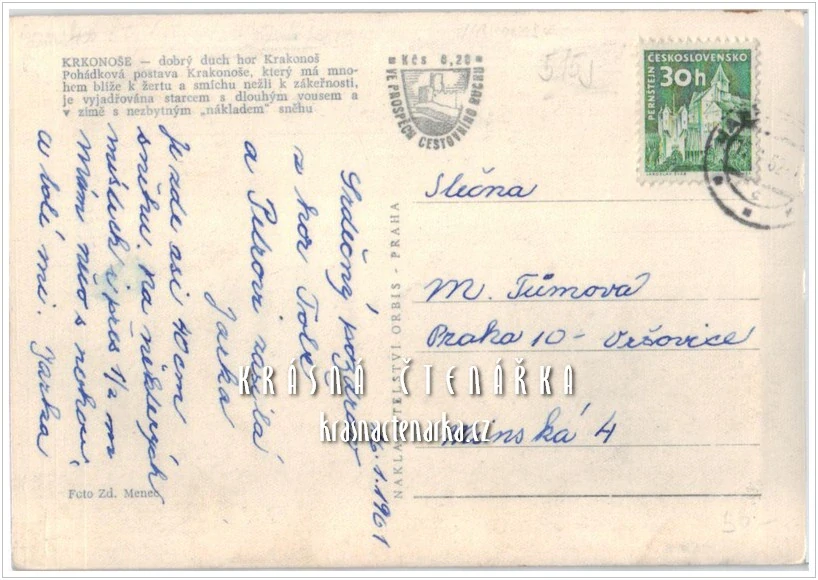 KRKONOŠE — dobrý duch hor Krakonoš
Pohádková postava Krakonoše, který má mno-
hem blíže k žertu a smíchu nežli k zákeřnosti,
je vyjadřována starcem s dlouhým vousem a
v zimě s nezbytným „nákladem" sněhu
Kčs 0,20
VE PROSPĚCH CESTOVNÍHO RUCHU
ČESKOSLOVENSKO
PERNŠTEJN
30h
26.1.1961
Srdečný pozdrav
z hor Tobě
a Petrovi zasílá
Jarka
Je zde asi 40 cm
sněhu, na některých
místech i přes 1/2 m
Mám něco s nohou
a bolí mi. Jarka
Slečna
M. Tůmová
Praha 10 - Vršovice
Minská 4
NAKLADATELSTVÍ ORBIS - PRAHA
Foto Zd. Menec
KRÁSNÁ ČTENÁŘKA
krasnactenarka.cz